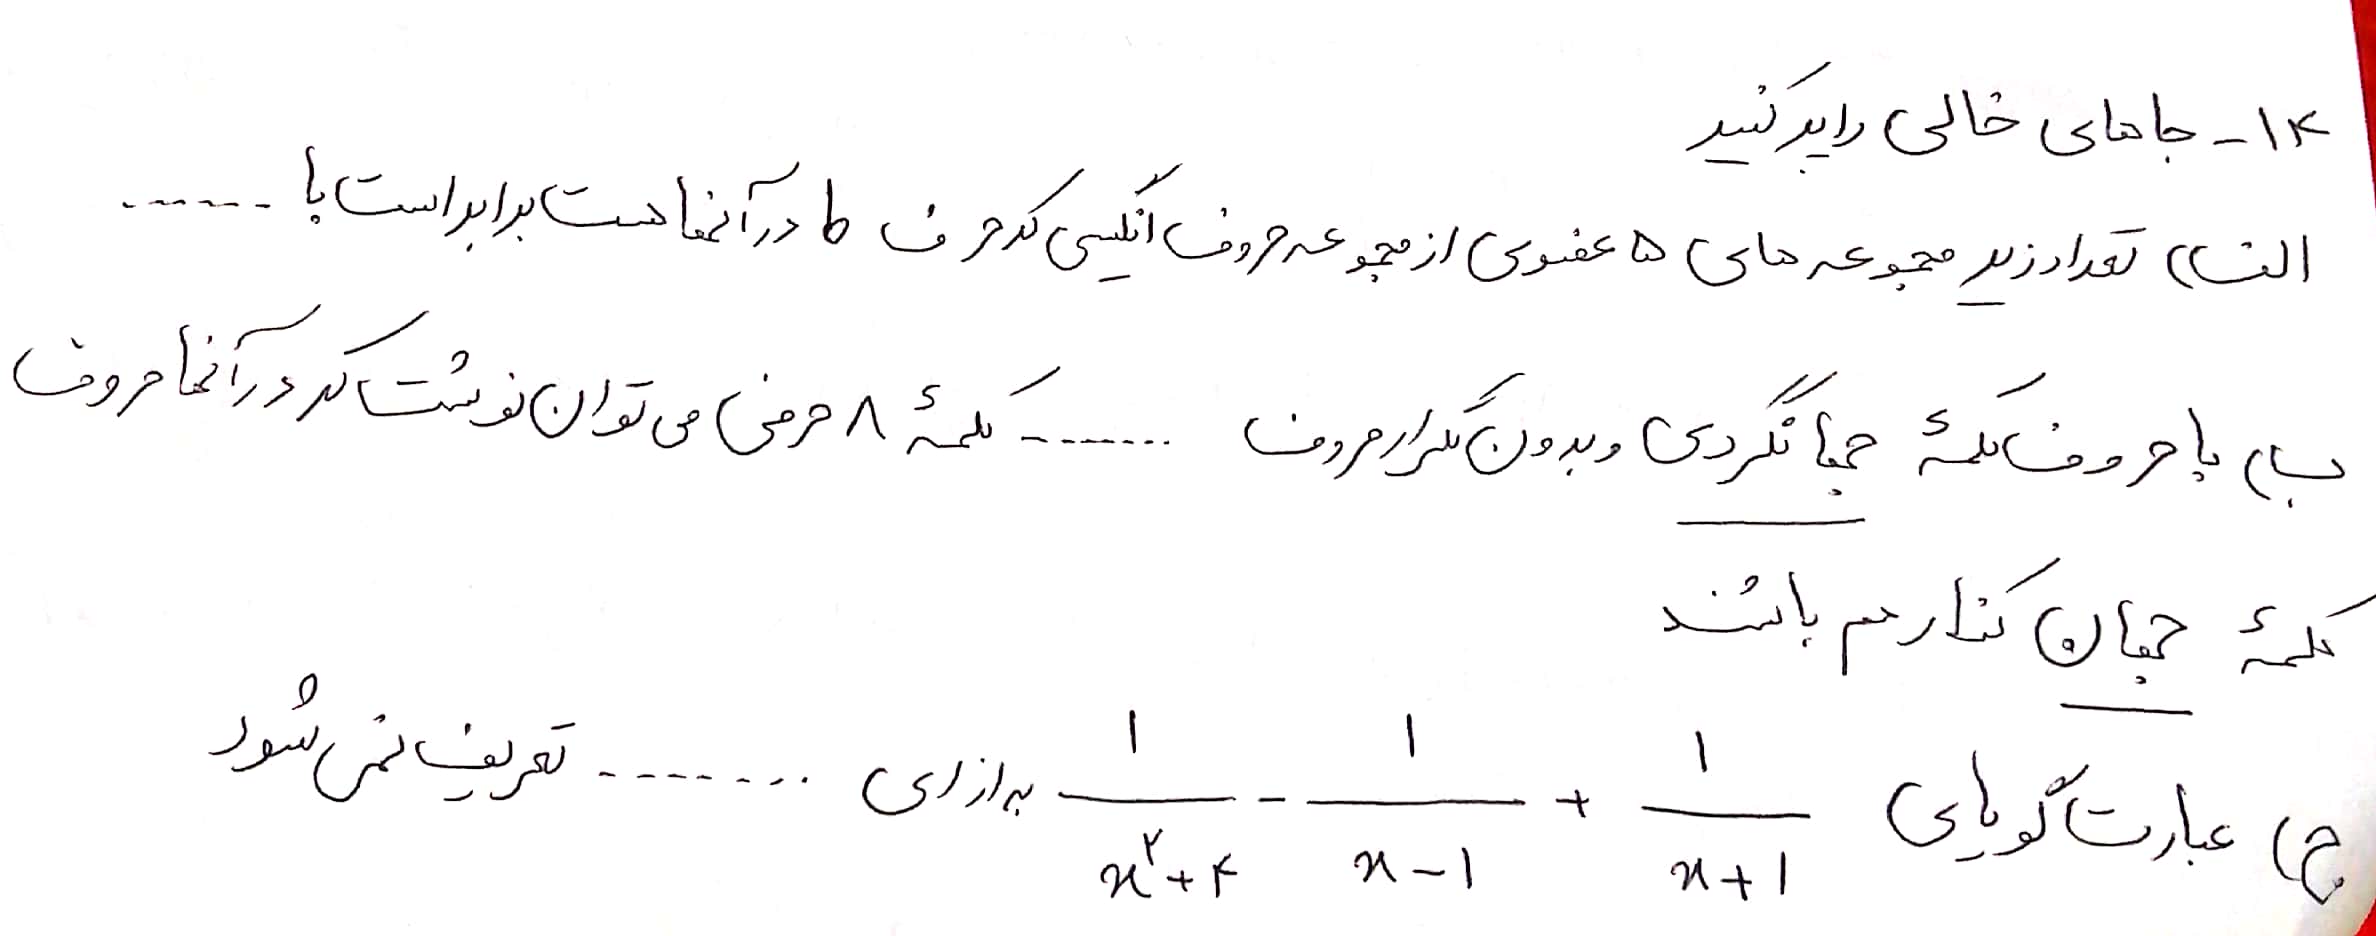 ۱۴- جاهای خالی را پر کنید
الف) تعداد زیر مجموعه های ۵ عضوی از مجموعه حروف انگلیسی که حرف b در آنها هست برابر است با ......
ب) با حروف کلمۀ جهانگردی و بدون تکرار حروف ....... کلمۀ ۸ حرفی می توان نوشت که در آنها حروف
کلمۀ جهان کنار هم باشند
ج) عبارت گویای ۱/(x+۱) + ۱/(x-۱) - ۱/(x^۲+۴) به ازای ........ تعریف نمی شود